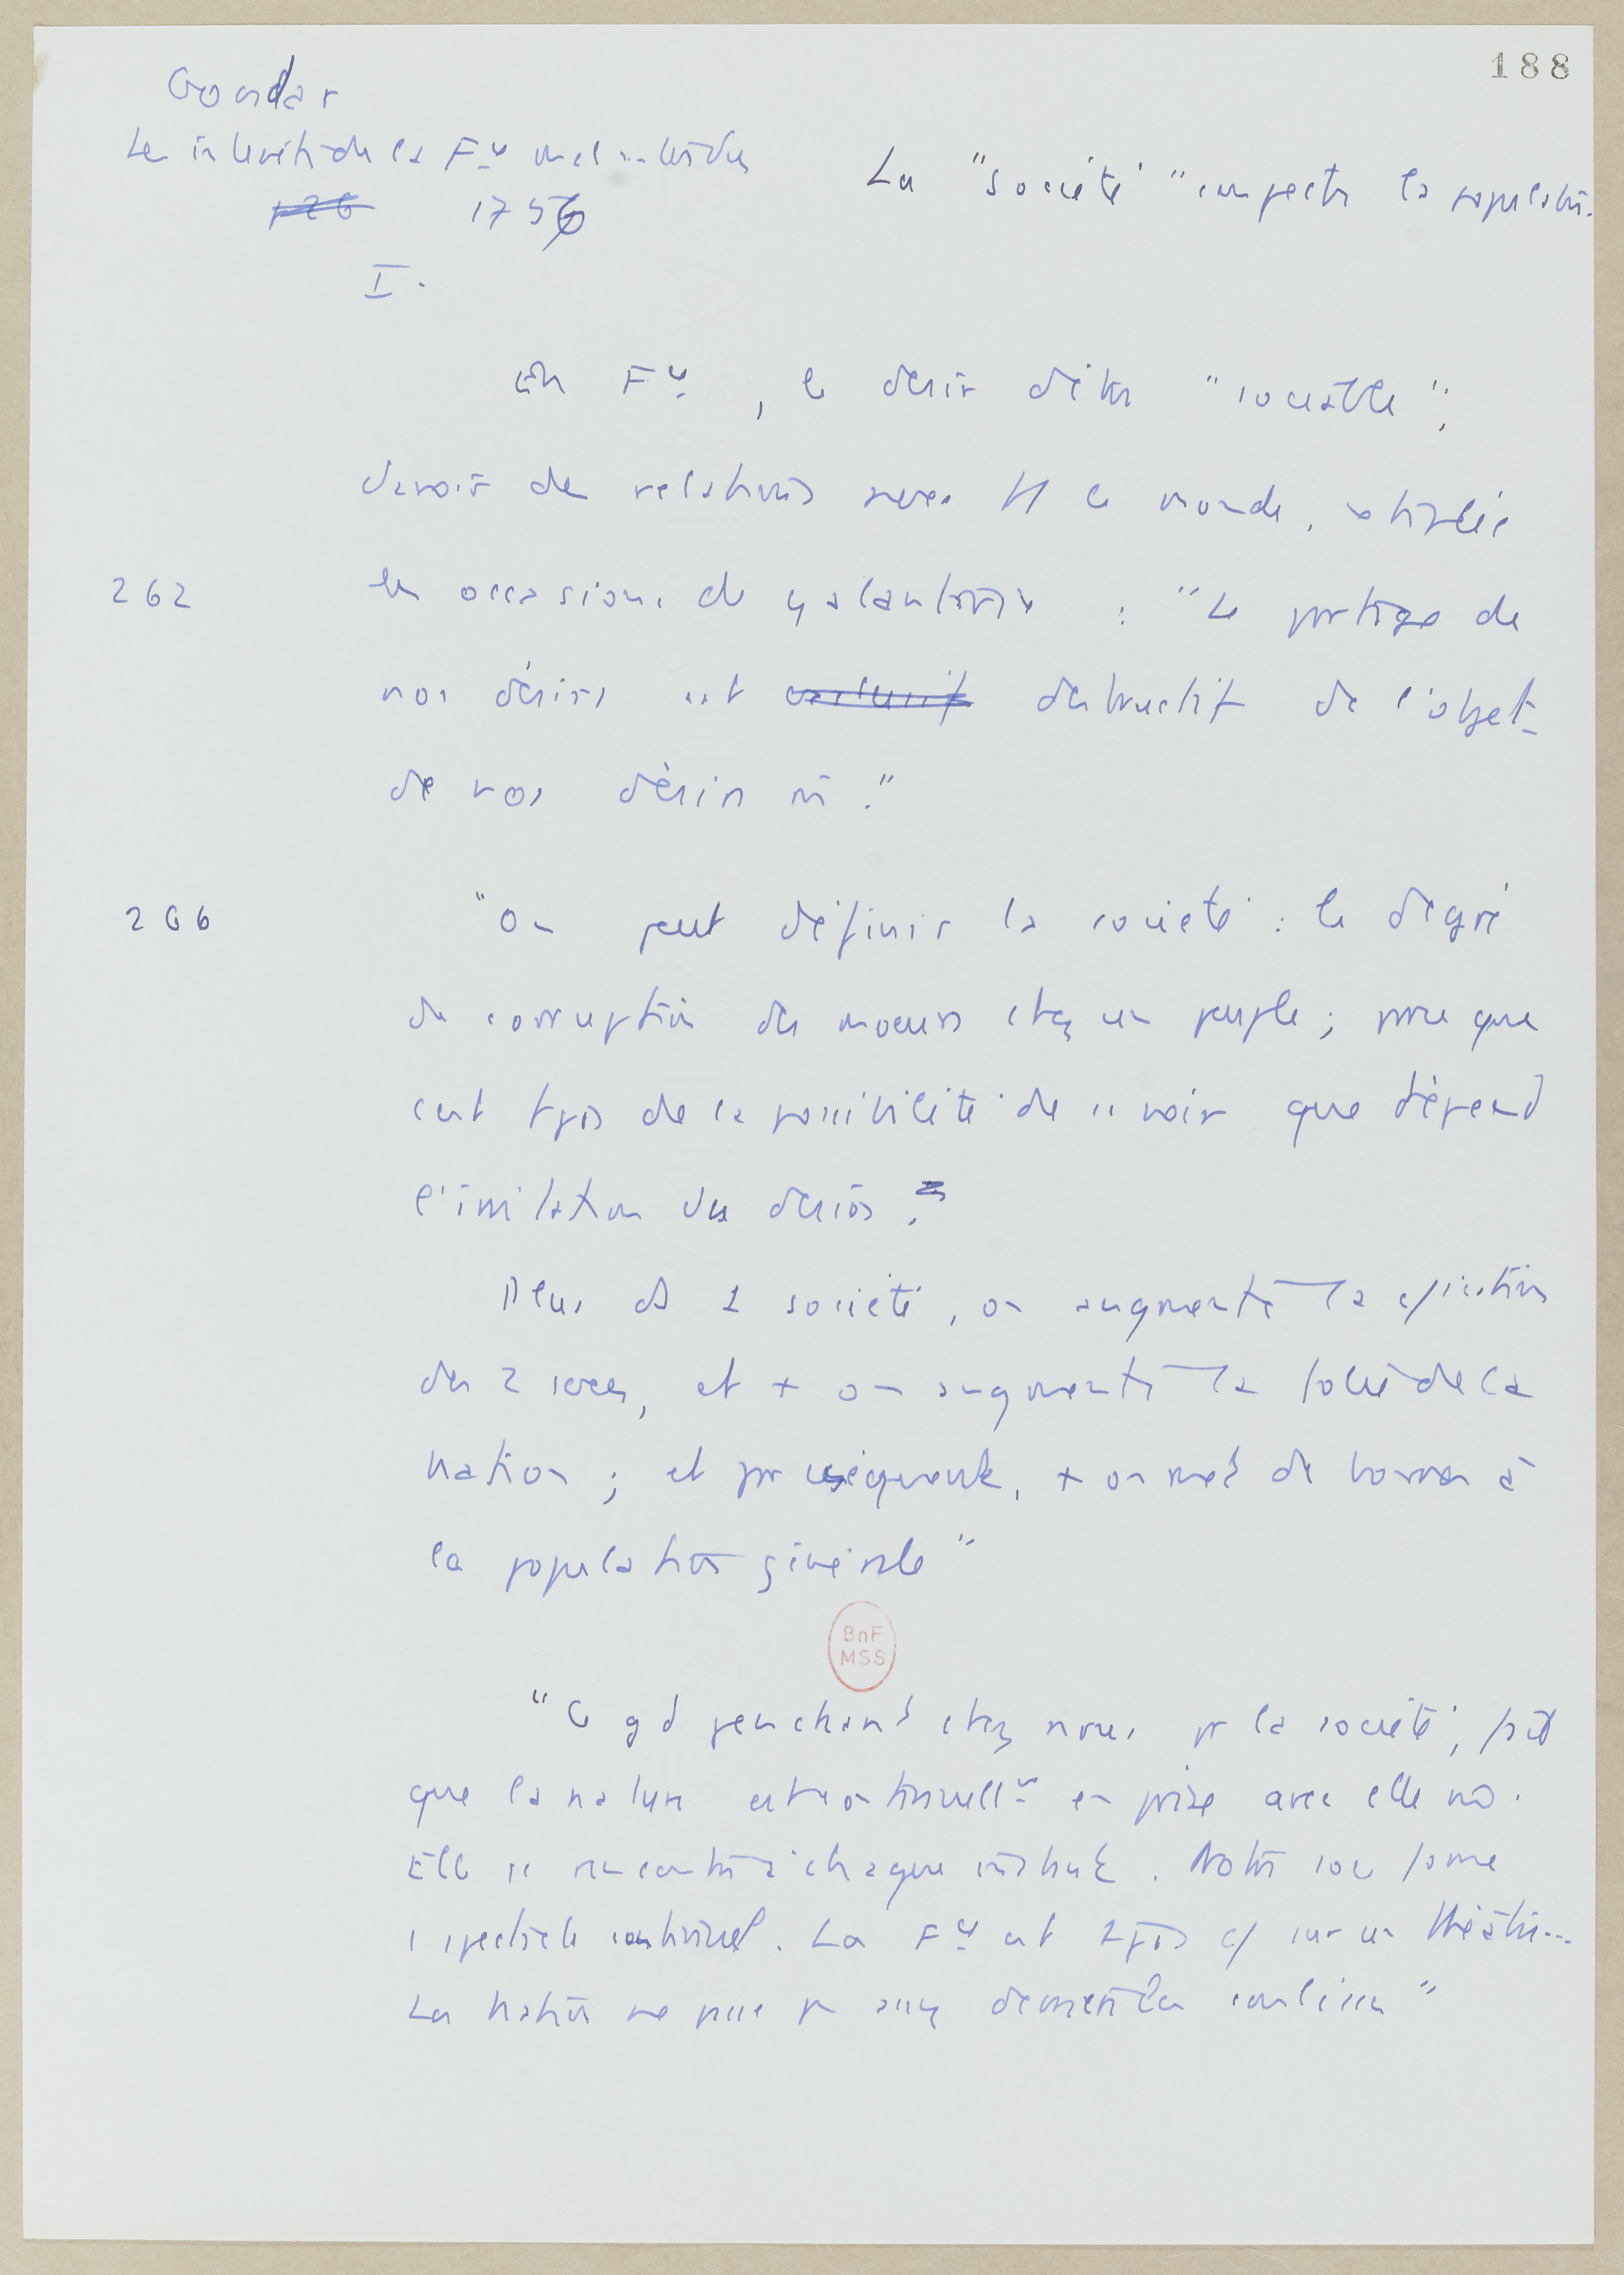 188
Goudar
Les intérêts de la Fce mal entendus
p26 1756
I.
La "société" et la population.
En Fce, le désir d'être "sociable",
d'avoir des relations avec tt le monde, multiplie
262 les occasions de galanterie : "Le partage de
nos désirs est destructif de l'objet
de nos désirs m."
266 "On peut définir la société : le degré
de corruption des moeurs chez un peuple ; parce que
c'est tjrs de la possibilité de se voir que dépend
l'irritation des désirs."
Plus ds 1 société, on augmente la
des 2 sexes, et + on augmente la folie de la
nation ; et par conséquent, + on met de bornes à
la population générale"
BnF
MSS
"Ce gd penchant chez nous pr la société, fait
que la nature est continuellt en prise avec elle m.
Elle se rencontre à chaque instant. Notre soc forme
1 spectacle continuel. La Fce est tjrs c/ sur un théâtre...
La nation ne passe pas assez derrière les coulisses"